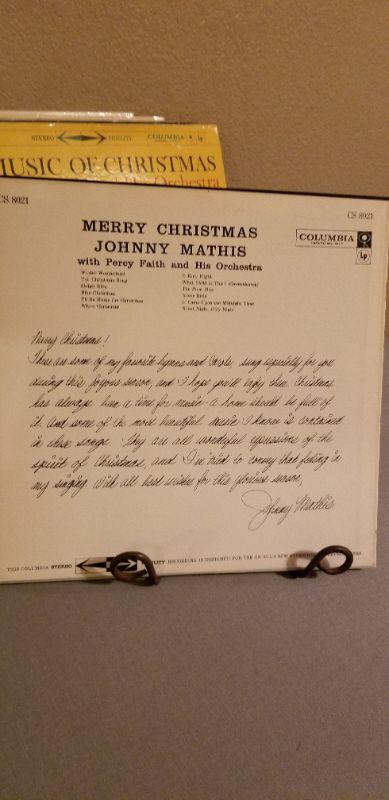 STEREO FIDELITY COLUMBIA LP
MUSIC OF CHRISTMAS
Orchestra
CS 8021
CS 8021
MERRY CHRISTMAS
JOHNNY MATHIS
with Percy Faith and His Orchestra
COLUMBIA
LP
Winter Wonderland
The Christmas Song
Sleigh Ride
Blue Christmas
I'll Be Home for Christmas
White Christmas
O Holy Night
What Child Is This? (Greensleeves)
The First Noel
Silver Bells
It Came Upon the Midnight Clear
Silent Night, Holy Night
Merry Christmas!
These are some of my favorite hymns and carols, sung especially for you
during this joyous season, and I hope you'll enjoy them. Christmas
has always been a time for music - a home should be full of
it. And some of the most beautiful music I know is contained
in these songs. They are all wonderful expressions of the
spirit of Christmas, and I've tried to convey that feeling in
my singing. With all best wishes for this glorious season,
Johnny Mathis
THIS COLUMBIA STEREO FIDELITY RECORDING IS DESIGNED FOR